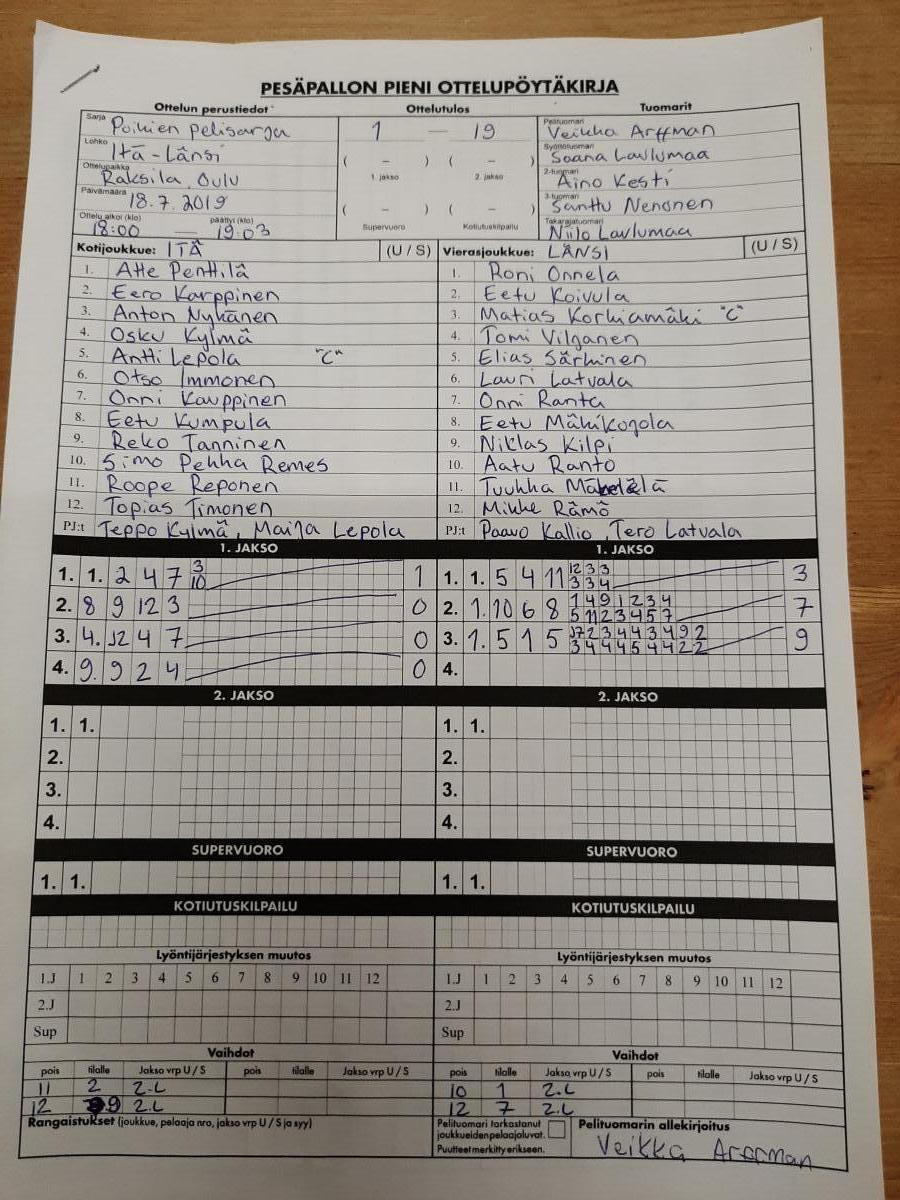 PESÄPALLON PIENI OTTELUPÖYTÄKIRJA
Ottelun perustiedot Ottelutulos Tuomarit
Sarja Poikien pelisarja 1 — 19 Pelituomari Veikka Arffman
Lohko Itä-Länsi ( – ) ( – ) Syöttötuomari Saana Laulumaa
Ottelupaikka Raksila, Oulu 1. jakso 2. jakso 2-tuomari Aino Kesti
Päivämäärä 18.7.2019 ( – ) ( – ) 3-tuomari Santtu Nenonen
Ottelu alkoi (klo) 18:00 — päättyi (klo) 19:03 Supervuoro Kotiutuskilpailu Takarajatuomari Niilo Laulumaa
Kotijoukkue: ITÄ (U / S) Vierasjoukkue: LÄNSI (U / S)
1. Atte Penttilä 1. Roni Onnela
2. Eero Karppinen 2. Eetu Koivula
3. Anton Nykänen 3. Matias Korkiamäki "C"
4. Osku Kylmä 4. Tomi Vilganen
5. Antti Lepola "C" 5. Elias Särkinen
6. Otso Immonen 6. Lauri Latvala
7. Onni Kauppinen 7. Onni Ranta
8. Eetu Kumpula 8. Eetu Mäkikogola
9. Reko Tanninen 9. Niklas Kilpi
10. Simo Pekka Remes 10. Aatu Ranto
11. Roope Reponen 11. Tuukka
12. Topias Timonen 12. Mikke Rämö
PJ:t Teppo Kylmä, Maija Lepola PJ:t Paavo Kallio, Tero Latvala
1. JAKSO 1. JAKSO
1. 1. 2 4 7 3 10 1 1. 1. 5 4 11 12 3 3 3 3 4 3
2. 8 9 12 3 0 2. 1. 10 6 8 1 4 9 1 2 3 4 5 11 2 3 4 5 7 7
3. 4. 12 4 7 0 3. 1. 5 1 5 2 3 4 4 3 4 9 2 3 4 4 4 5 4 4 2 2 9
4. 9. 9 2 4 0 4.
2. JAKSO 2. JAKSO
1. 1. 1. 1.
2. 2.
3. 3.
4. 4.
SUPERVUORO SUPERVUORO
1. 1. 1. 1.
KOTIUTUSKILPAILU KOTIUTUSKILPAILU
Lyöntijärjestyksen muutos Lyöntijärjestyksen muutos
1.J 1 2 3 4 5 6 7 8 9 10 11 12 1.J 1 2 3 4 5 6 7 8 9 10 11 12
2.J 2.J
Sup Sup
Vaihdot Vaihdot
pois tilalle Jakso vrp U / S pois tilalle Jakso vrp U / S pois tilalle Jakso vrp U / S pois tilalle Jakso vrp U / S
11 2 2.L 10 1 2.L
12 9 2.L 12 7 2.L
Rangaistukset (joukkue, pelaaja nro, jakso vrp U / S ja syy) Pelituomari tarkastanut Pelituomarin allekirjoitus
joukkueiden pelaajaluvat.
Puutteet merkitty erikseen. Veikka Arffman